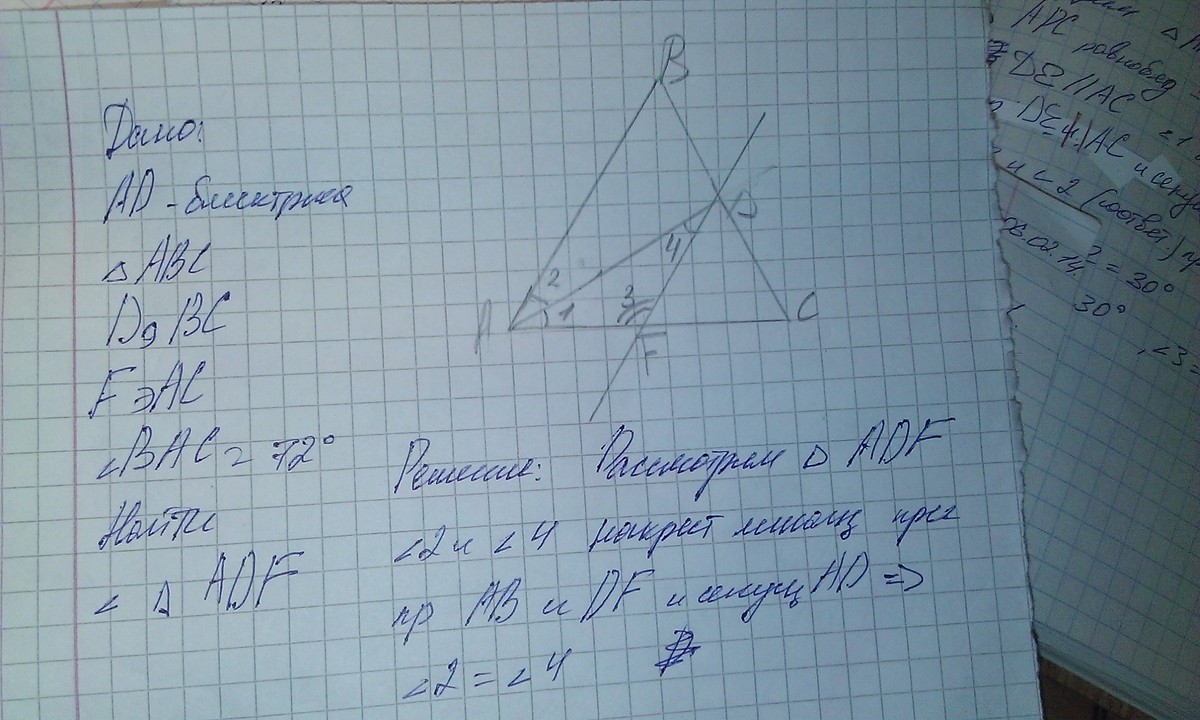 Дано:
AD - биссектриса
△ ABC
D э BC
F э AC
∠BAC = 72°
Найти
∠ △ ADF
B
D
4
2
1
3
A
C
F
Решение: Рассмотрим △ ADF
∠2 и ∠4 накрест лежащ при
пр AB и DF и секущ AD =>
∠2 = ∠4
△
APC равнобед
DE//AC
DE//AC и секущ
и ∠2 (соответ)
06.02.14.
2 = 30°
30°
, ∠3 =